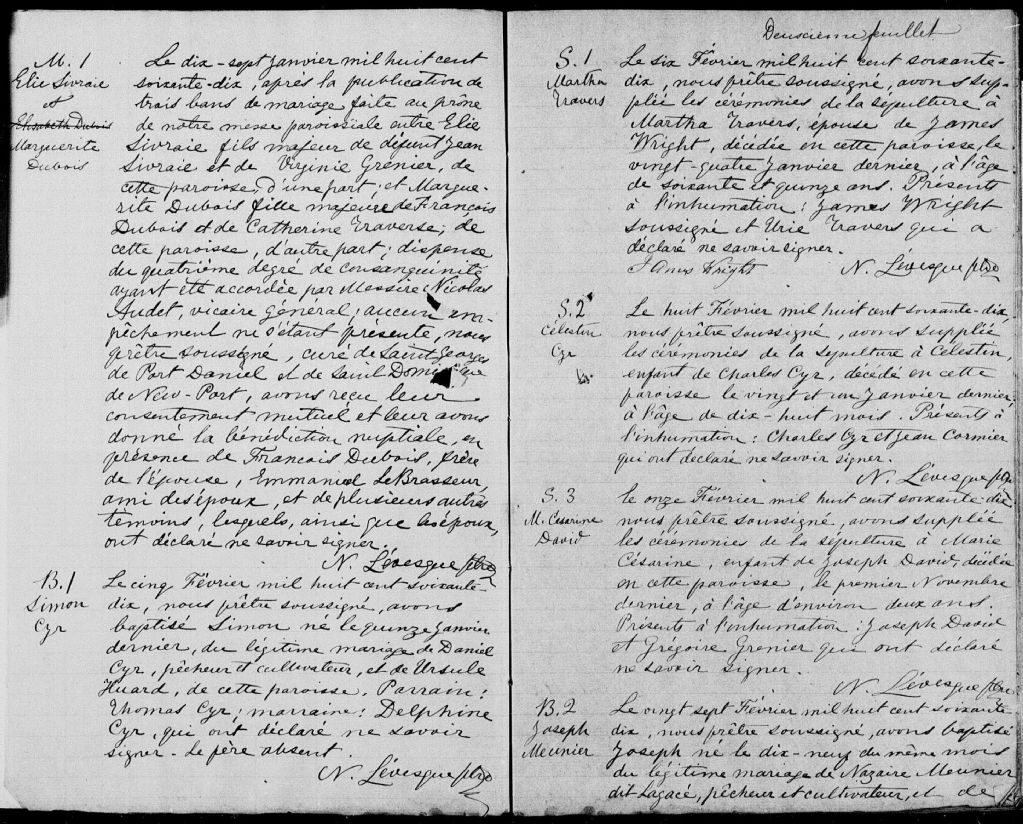 M. 1
Elie Sivraie
et
Elisabeth Dubois
Marguerite
Dubois
Le dix-sept Janvier mil huit cent
soixante-dix, après la publication de
trois bans de mariage faite au prône
de notre messe paroissiale entre Elie
Sivraie fils majeur de défunt Jean
Sivraie et de Virginie Grenier, de
cette paroisse, d'une part; et Margue-
rite Dubois fille majeure de François
Dubois et de Catherine Traverse, de
cette paroisse, d'autre part; dispense
du quatrième degré de consanguinité
ayant été accordée par Messire Nicolas
Audet, vicaire Général; aucun em-
pêchement ne s'étant présenté, nous
prêtre soussigné, curé de Saint Georges
de Port Daniel et de Saint Dominique
de New-Port, avons reçu leur
consentement mutuel et leur avons
donné la bénédiction nuptiale, en
présence de François Dubois, frère
de l'épouse, Emmanuel LeBrasseur,
ami des époux, et de plusieurs autres
témoins, lesquels, ainsi que les époux,
ont déclaré ne savoir signer.
N. Lévesque ptre
B. 1
Simon
Cyr
Le cinq Février mil huit cent soixante-
dix, nous prêtre soussigné, avons
baptisé Simon né le quinze Janvier
dernier, du légitime mariage de Daniel
Cyr, pêcheur et cultivateur, et de Ursule
Huard, de cette paroisse. Parrain:
Thomas Cyr; marraine: Delphine
Cyr, qui ont déclaré ne savoir
signer. Le père absent.
N. Lévesque ptre
Deuxcième feuillet
S. 1
Martha
Travers
Le six Février mil huit cent soixante-
dix, nous prêtre soussigné, avons sup-
plée les cérémonies de la sépulture à
Martha Travers, épouse de James
Wright, décédée en cette paroisse, le
vingt-quatre Janvier dernier, à l'âge
de soixante et quinze ans. Présents
à l'inhumation: James Wright
soussigné et Urie Travers qui a
déclaré ne savoir signer.
James Wright
N. Lévesque ptre
S. 2
Célestin
Cyr
Le huit Février mil huit cent soixante-dix
nous prêtre soussigné, avons supplée
les cérémonies de la sépulture à Célestin,
enfant de Charles Cyr, décédé en cette
paroisse le vingt et un Janvier dernier,
à l'âge de dix-huit mois. Présents à
l'inhumation: Charles Cyr et Jean Cormier
qui ont déclaré ne savoir signer.
N. Lévesque ptre
S. 3
M. Césarine
David
le onze Février mil huit cent soixante-dix
nous prêtre soussigné, avons supplée
les cérémonies de la sépulture à Marie
Césarine, enfant de Joseph David, décédée
en cette paroisse, le premier Novembre
dernier, à l'âge d'environ deux ans.
Présents à l'inhumation: Joseph David
et Grégoire Grenier qui ont déclaré
ne savoir signer.
N. Lévesque ptre
B. 2
Joseph
Meunier
Le vingt sept Février mil huit cent soixante
dix, nous prêtre soussigné, avons baptisé
Joseph né le dix-neuf du même mois
du légitime mariage de Nazaire Meunier
dit Lagacé, pêcheur et cultivateur, et de